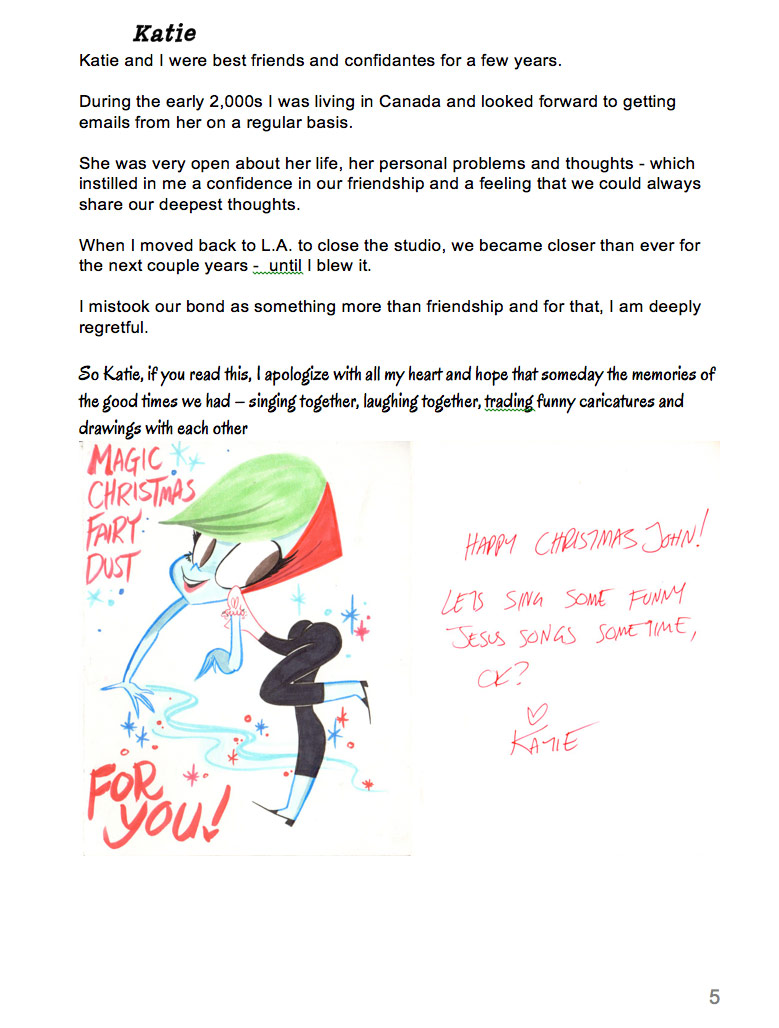 Katie
Katie and I were best friends and confidantes for a few years.
During the early 2,000s I was living in Canada and looked forward to getting
emails from her on a regular basis.
She was very open about her life, her personal problems and thoughts - which
instilled in me a confidence in our friendship and a feeling that we could always
share our deepest thoughts.
When I moved back to L.A. to close the studio, we became closer than ever for
the next couple years -  until I blew it.
I mistook our bond as something more than friendship and for that, I am deeply
regretful.
So Katie, if you read this, I apologize with all my heart and hope that someday the memories of
the good times we had – singing together, laughing together, trading funny caricatures and
drawings with each other
MAGIC
CHRISTMAS
FAIRY
DUST
FOR
YOU!
HAPPY CHRISTMAS JOHN!
LETS SING SOME FUNNY
JESUS SONGS SOMETIME,
OK?
KATIE
5